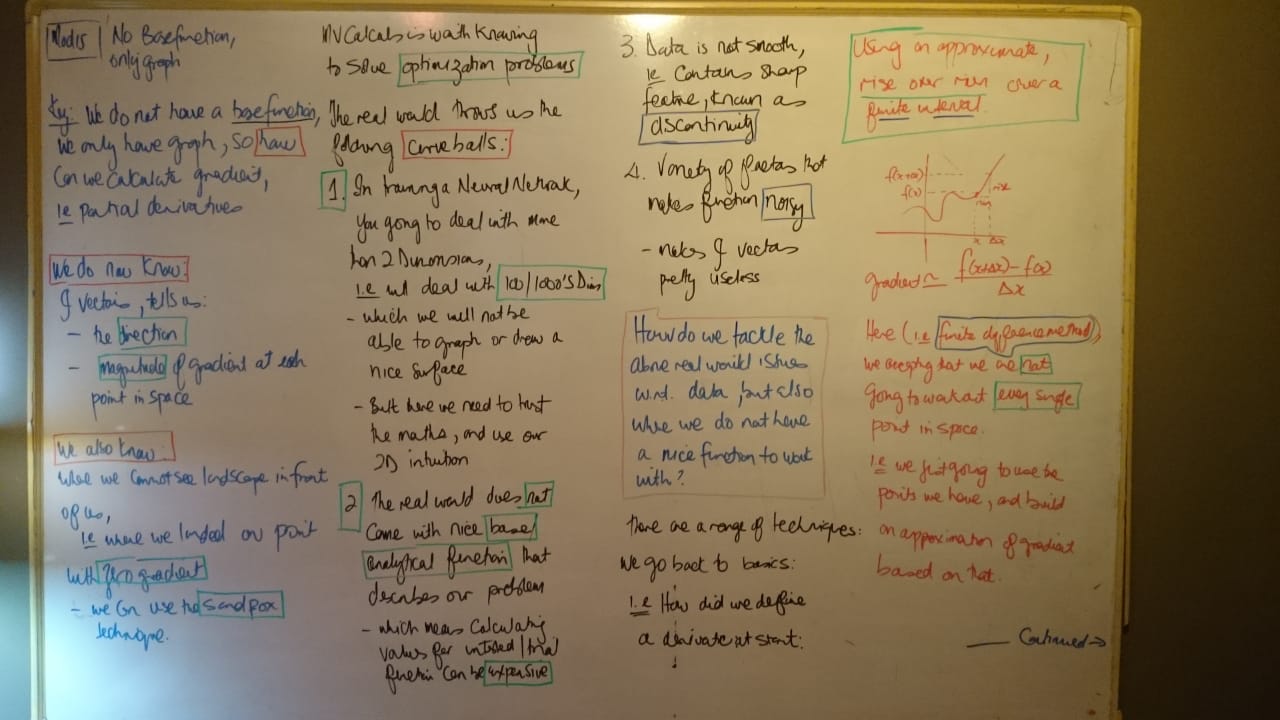 Mod15 | No Basefunction,
only graph
Key: We do not have a basefunction,
we only have graph, so how
Can we calculate gradient,
ie partial derivatives
We do now know:
J vectors, tells us:
- the direction
- magnitude of gradient at each
point in space
We also know:
where we cannot see landscape in front
of us,
i.e where we landed on point
with zero gradient
- we can use the sandpox
technique.
MV Calculus is worth knowing
to solve optimization problems
The real world throws us the
following curve balls:
1. In training a Neural Network,
you going to deal with more
than 2 Dimensions,
i.e will deal with 100/1000's Dims
- which we will not be
able to graph or draw a
nice surface
- But here we need to trust
the maths, and use our
2D intuition
2 The real world does not
come with nice base/
analytical function that
describes our problem
- which means calculating
values for intended/trial
function can be expensive
3. Data is not smooth,
ie contains sharp
feature, known as
discontinuity
4. Variety of factors that
makes function noisy
- makes J vectors
pretty useless
How do we tackle the
above real world issues
w.r.t. data, but also
where we do not have
a nice function to work
with?
There are a range of techniques:
We go back to basics:
i.e How did we define
a derivate at start:
Using an approximate,
rise over run over a
finite interval.
f(x+Δx)
f(x)
rise
run
x Δx
gradient ≃ f(x+Δx) - f(x)
Δx
Here (i.e finite difference method),
we accepting that we are not
going to work out every single
point in space.
i.e we just going to use the
points we have, and build
an approximation of gradient
based on that.
Continued →